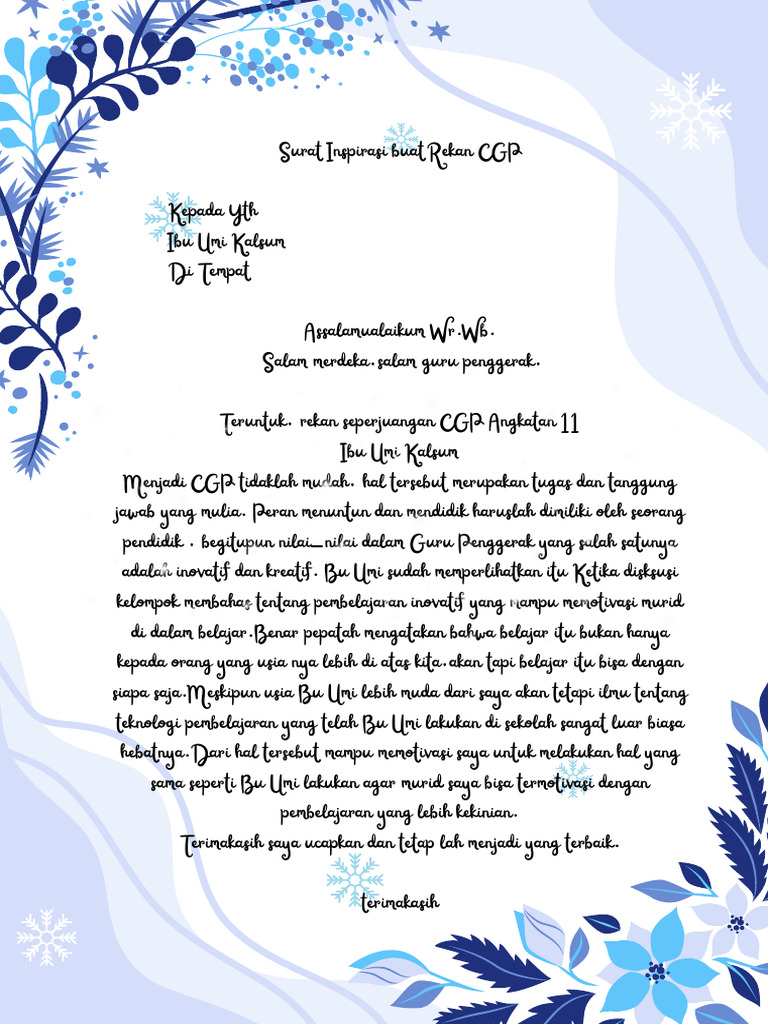 Surat Inspirasi buat Rekan CGP
Kepada Yth
Ibu Umi Kalsum
Di Tempat
Assalamualaikum Wr.Wb.
Salam merdeka, salam guru penggerak.
Teruntuk, rekan seperjuangan CGP Angkatan 11
Ibu Umi Kalsum
Menjadi CGP tidaklah mudah, hal tersebut merupakan tugas dan tanggung
jawab yang mulia. Peran menuntun dan mendidik haruslah dimiliki oleh seorang
pendidik , begitupun nilai_nilai dalam Guru Penggerak yang salah satunya
adalah inovatif dan kreatif. Bu Umi sudah memperlihatkan itu Ketika disksusi
kelompok membahas tentang pembelajaran inovatif yang mampu memotivasi murid
di dalam belajar.Benar pepatah mengatakan bahwa belajar itu bukan hanya
kepada orang yang usia nya lebih di atas kita,akan tapi belajar itu bisa dengan
siapa saja.Meskipun usia Bu Umi lebih muda dari saya akan tetapi ilmu tentang
teknologi pembelajaran yang telah Bu Umi lakukan di sekolah sangat luar biasa
hebatnya.Dari hal tersebut mampu memotivasi saya untuk melakukan hal yang
sama seperti Bu Umi lakukan agar murid saya bisa termotivasi dengan
pembelajaran yang lebih kekinian.
Terimakasih saya ucapkan dan tetap lah menjadi yang terbaik.
terimakasih